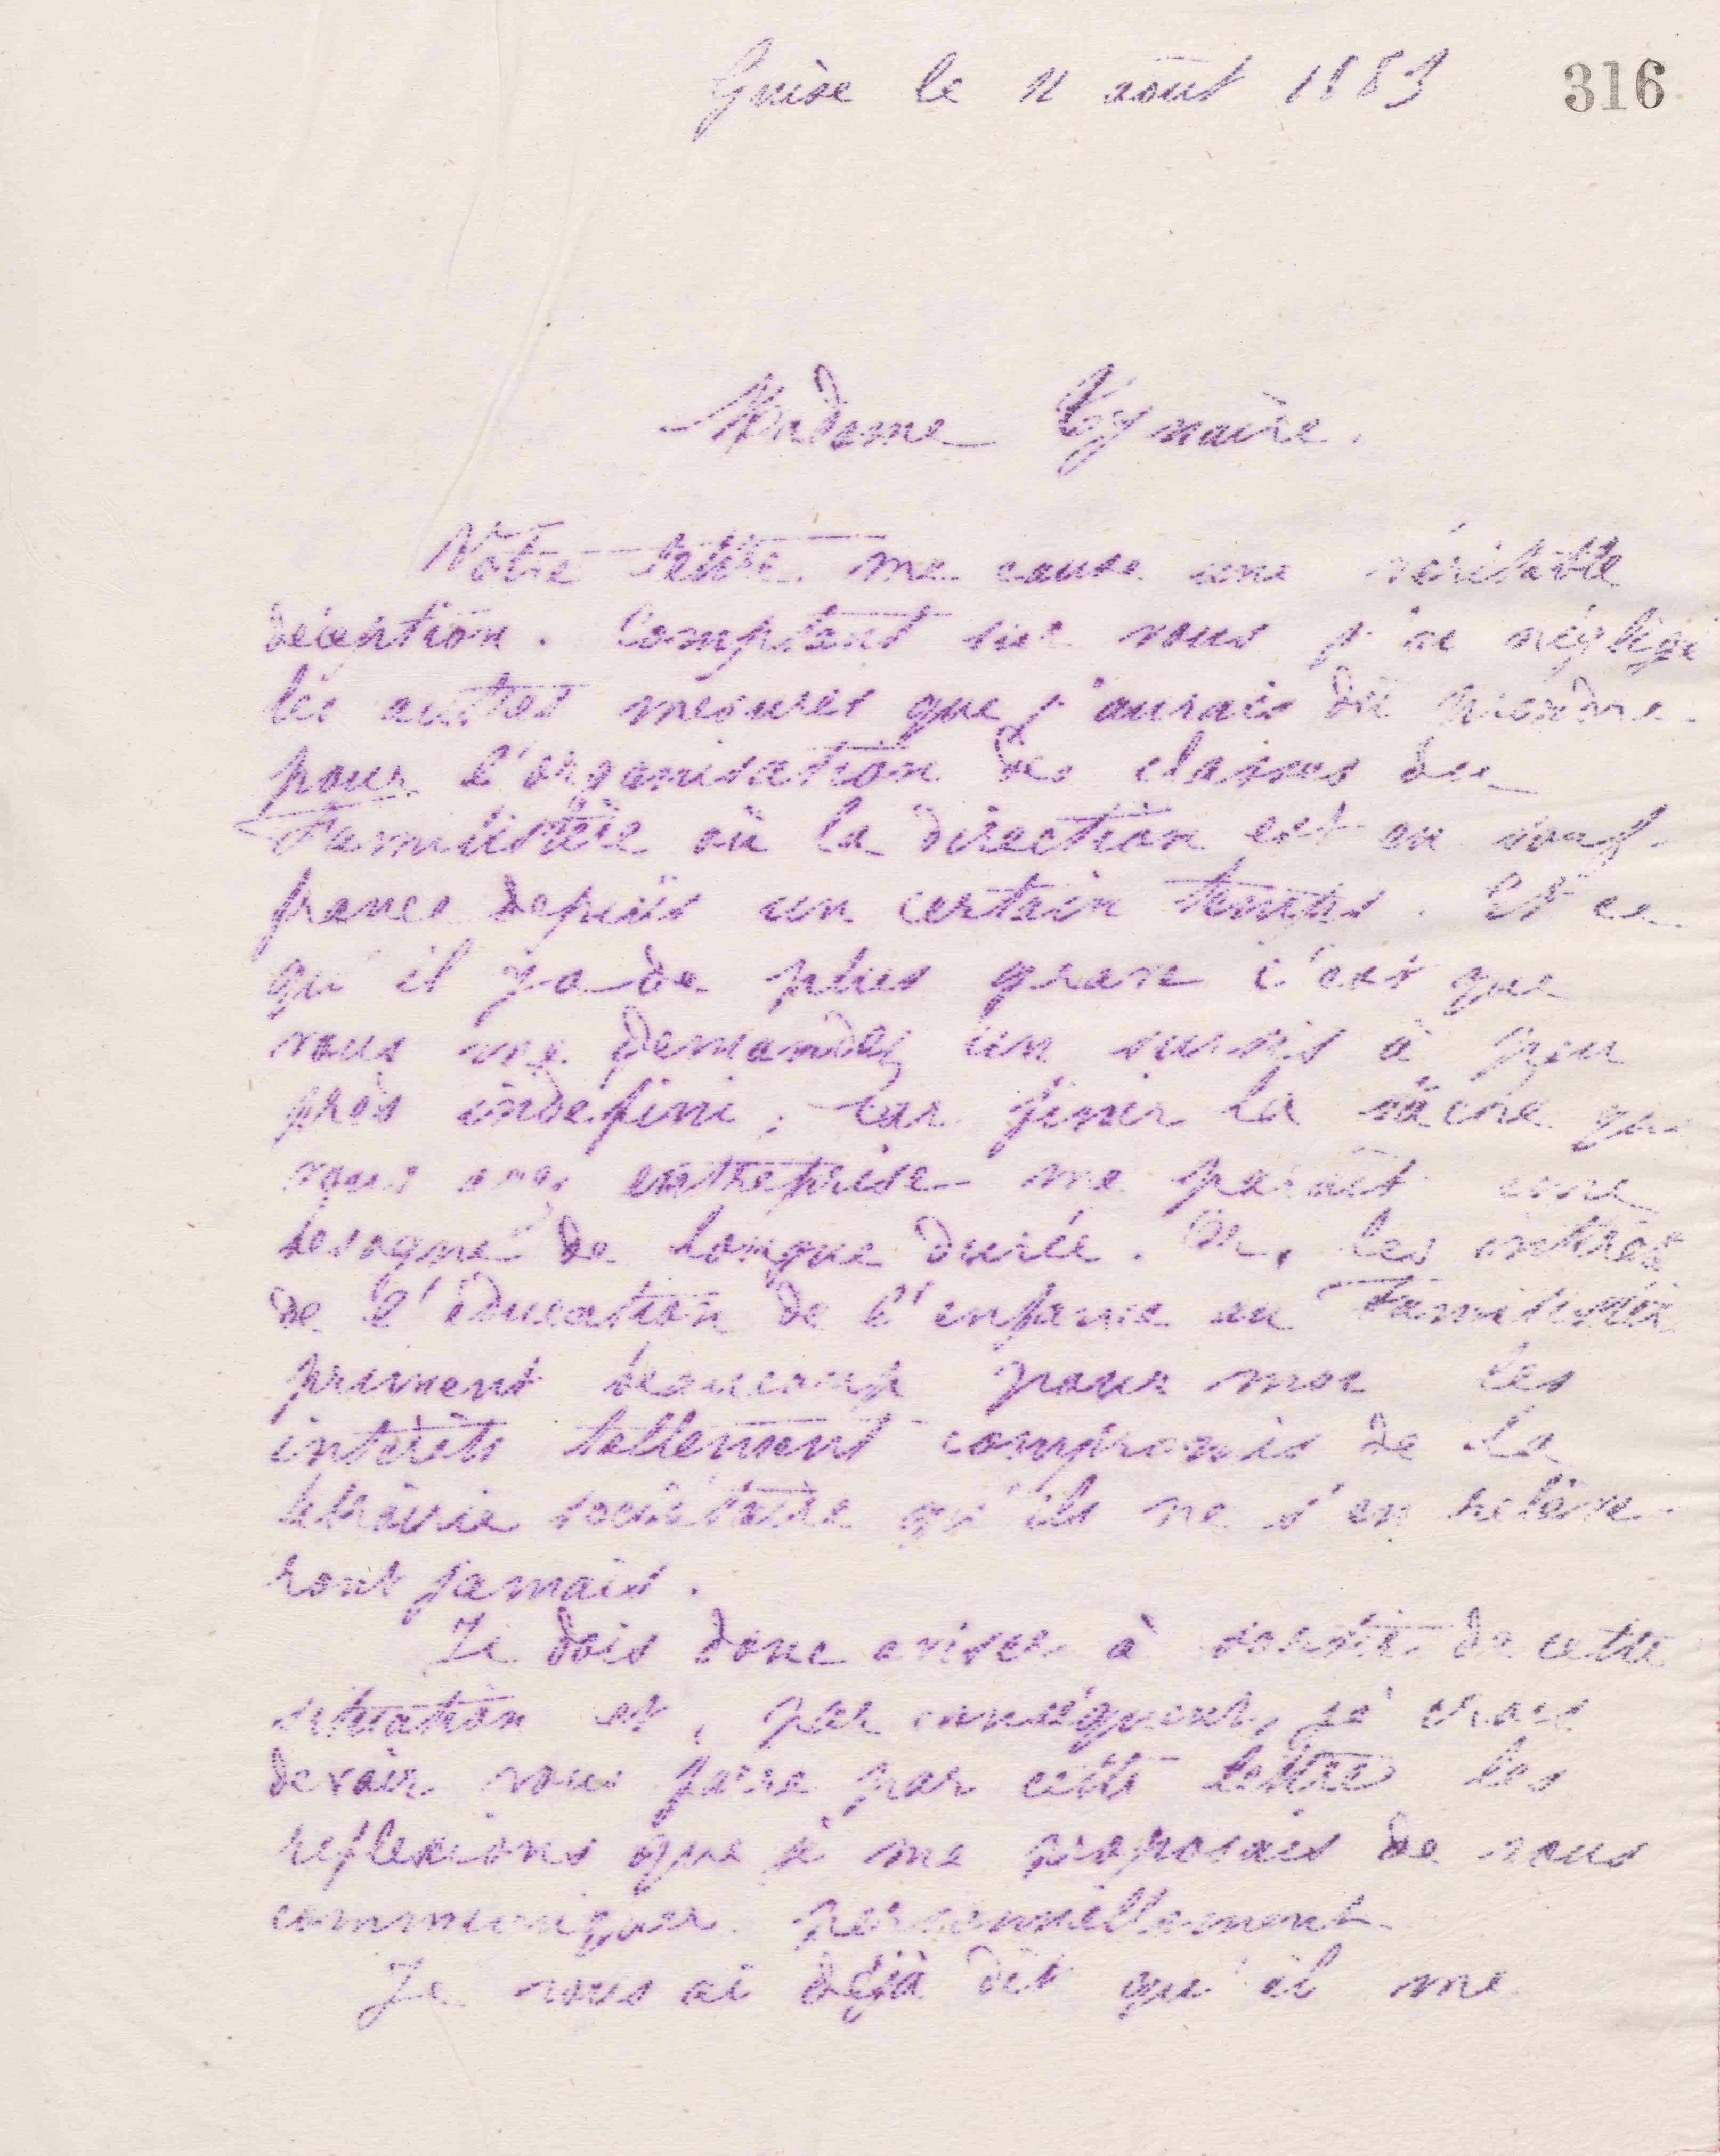 Guise le 11 août 1883
316
Madame Tynaire.
Votre lettre me cause une véritable
déception. Comptant sur vous j'ai négligé
les autres mesures que j'aurais dû prendre
pour l'organisation des classes du
Familistère où la direction est en souf-
france depuis un certain temps. Et ce
qu'il y a de plus grave c'est que
vous me demandez un sursis à peu
près indéfini, car finir la tâche que
vous avez entreprise me paraît une
besogne de longue durée. Or, les intérêts
de l'éducation de l'enfance au Familistère
priment beaucoup pour moi les
intérêts tellement compromis de la
librairie sociétaire qu'ils ne s'en relève-
ront jamais.
Je dois donc aviser à sortir de cette
situation et, par conséquent, je crois
devoir vous faire par cette lettre les
réflexions que je me proposais de vous
communiquer personnellement
Je vous ai déjà dit qu'il me